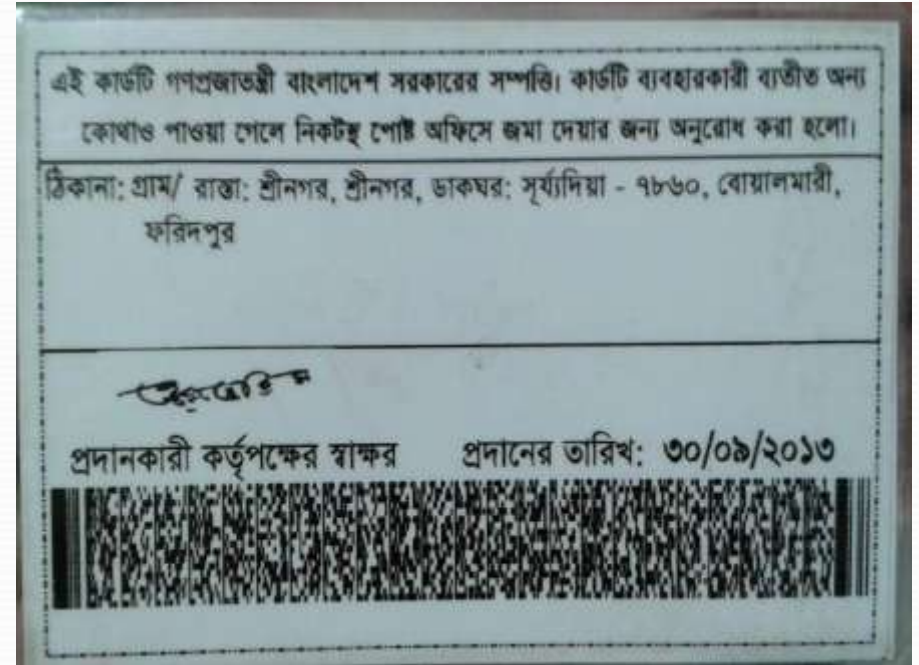 এই কার্ডটি গণপ্রজাতন্ত্রী বাংলাদেশ সরকারের সম্পত্তি। কার্ডটি ব্যবহারকারী ব্যতীত অন্য
কোথাও পাওয়া গেলে নিকটস্থ পোষ্ট অফিসে জমা দেয়ার জন্য অনুরোধ করা হলো।
ঠিকানা: গ্রাম/ রাস্তা: শ্রীনগর, শ্রীনগর, ডাকঘর: সূর্য্যদিয়া - ৭৮৬০, বোয়ালমারী,
ফরিদপুর
প্রদানকারী কর্তৃপক্ষের স্বাক্ষর প্রদানের তারিখ: ৩০/০৯/২০১৩